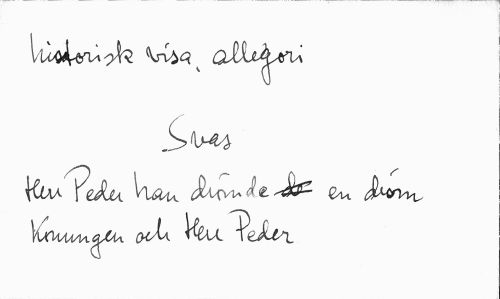 historisk visa, allegori
Svas
Herr Peder han drömde en dröm
Konungen och Herr Peder